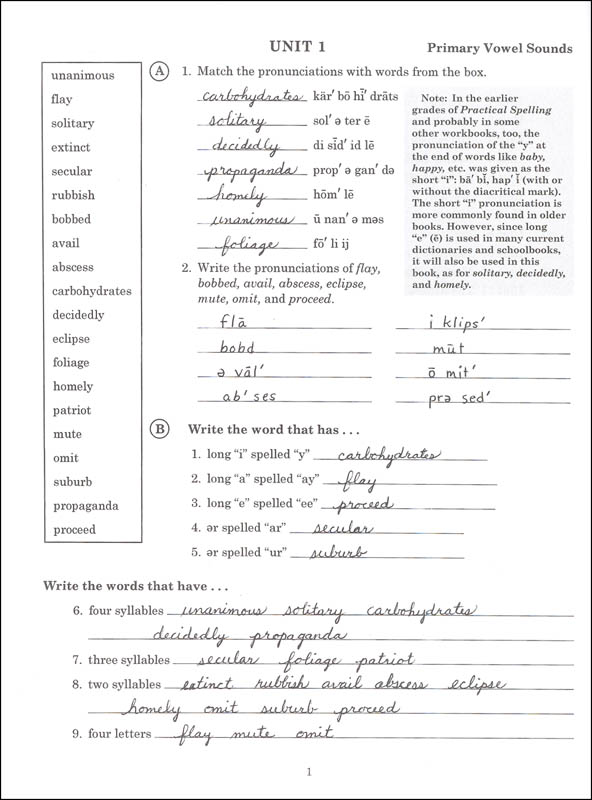 UNIT 1
Primary Vowel Sounds
unanimous
flay
solitary
extinct
secular
rubbish
bobbed
avail
abscess
carbohydrates
decidedly
eclipse
foliage
homely
patriot
mute
omit
suburb
propaganda
proceed
A 1. Match the pronunciations with words from the box.
carbohydrates kär′ bō hī′ drāts
solitary sol′ ə ter ē
decidedly di sīd′ id lē
propaganda prop′ ə gan′ də
homely hōm′ lē
unanimous ū nan′ ə məs
foliage fō′ li ij
Note: In the earlier
grades of Practical Spelling
and probably in some
other workbooks, too, the
pronunciation of the “y” at
the end of words like baby,
happy, etc. was given as the
short “i”: bā′ bĭ, hap′ ĭ (with or
without the diacritical mark).
The short “i” pronunciation is
more commonly found in older
books. However, since long
“e” (ē) is used in many current
dictionaries and schoolbooks,
it will also be used in this
book, as for solitary, decidedly,
and homely.
2. Write the pronunciations of flay,
bobbed, avail, abscess, eclipse,
mute, omit, and proceed.
flā
bobd
ə vāl′
ab′ ses
i klips′
mūt
ō mit′
prə sed′
B Write the word that has . . .
1. long “i” spelled “y” carbohydrates
2. long “a” spelled “ay” flay
3. long “e” spelled “ee” proceed
4. ər spelled “ar” secular
5. ər spelled “ur” suburb
Write the words that have . . .
6. four syllables unanimous solitary carbohydrates
decidedly propaganda
7. three syllables secular foliage patriot
8. two syllables extinct rubbish avail abscess eclipse
homely omit suburb proceed
9. four letters flay mute omit
1